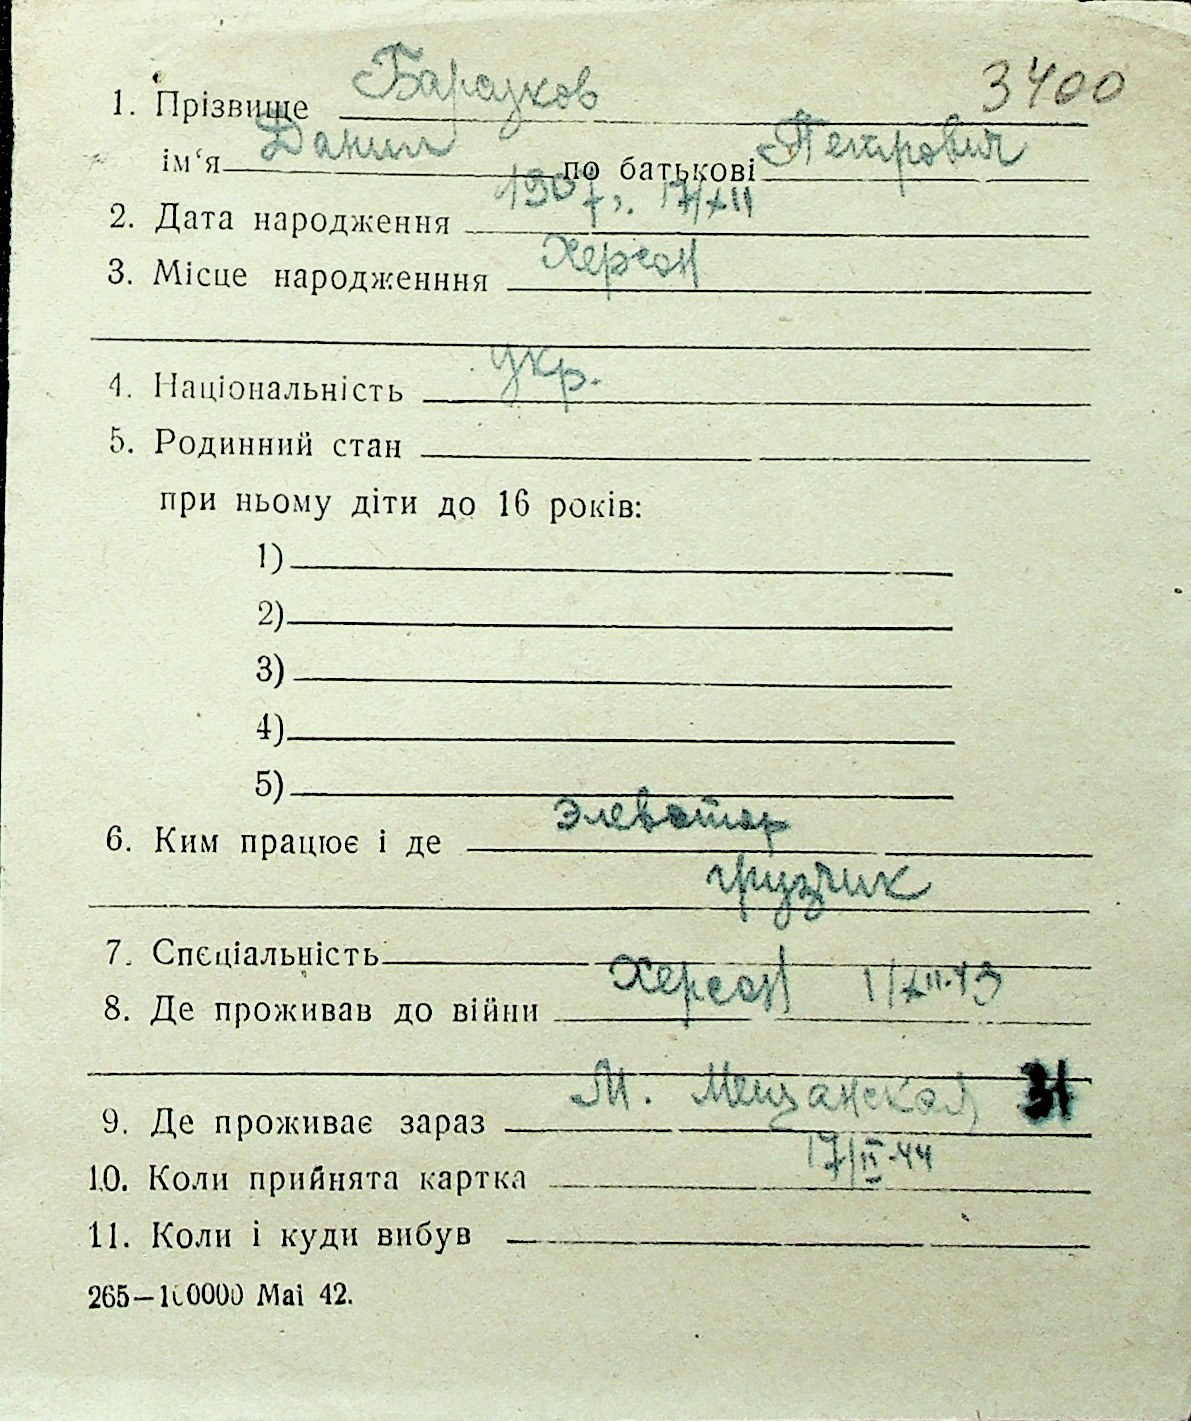 3400
1. Прізвище Баразков
ім‘я Данил по батькові Петрович
2. Дата народження 1907 г. 17/XII
3. Місце народженння Херсон
4. Національність укр.
5. Родинний стан
при ньому діти до 16 років:
1)
2)
3)
4)
5)
6. Ким працює і де элеватор
грузчик
7. Спеціальність
8. Де проживав до війни Херсон 1/XII-43
9. Де проживає зараз М. Мещанская 31
10. Коли прийнята картка 17/II-44
11. Коли і куди вибув
265—100000 Mai 42.